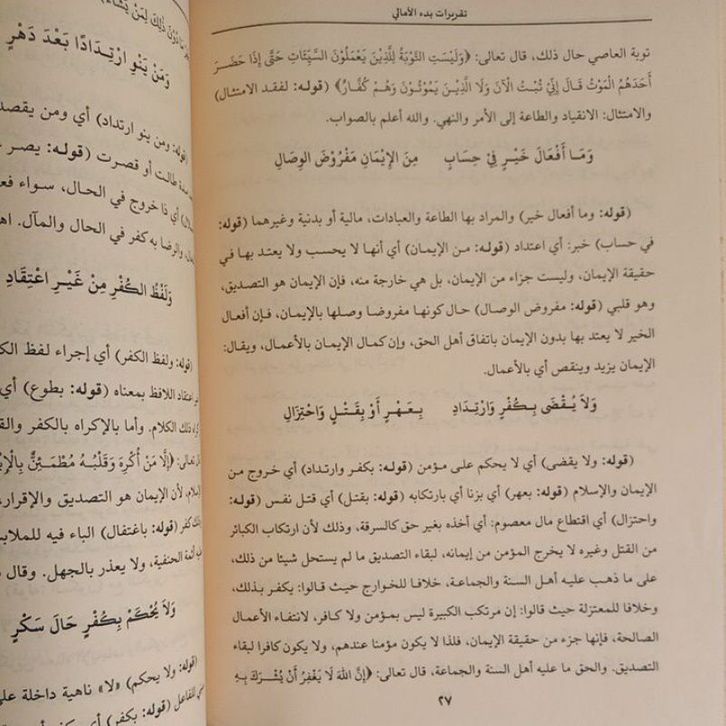 تقريرات بدء الأمالي
توبة العاصي حال ذلك، قال تعالى: ﴿وَلَيْسَتِ التَّوْبَةُ لِلَّذِينَ يَعْمَلُونَ السَّيِّئَاتِ حَتَّى إِذَا حَضَرَ
أَحَدَهُمُ الْمَوْتُ قَالَ إِنِّي تُبْتُ الْآنَ وَلَا الَّذِينَ يَمُوتُونَ وَهُمْ كُفَّارٌ﴾ (قوله: لفقد الامتثال)
والامتثال: الانقياد والطاعة إلى الأمر والنهي. والله أعلم بالصواب.
وَمَا أَفْعَالُ خَيْرٍ فِي حِسَابِ مِنَ الْإِيْمَانِ مَفْرُوْضَ الْوِصَالِ
(قوله: وما أفعال خير) والمراد بها الطاعة والعبادات، مالية أو بدنية وغيرهما (قوله:
في حساب) خبر: أي اعتداد (قوله: من الإيمان) أي أنها لا يحسب ولا يعتد بها في
حقيقة الإيمان، وليست جزاء من الإيمان، بل هي خارجة منه، فإن الإيمان هو التصديق،
وهو قلبي (قوله: مفروض الوصال) حال كونها مفروضا وصلها بالإيمان، فإن أفعال
الخير لا يعتد بها بدون الإيمان باتفاق أهل الحق، وإن كمال الإيمان بالأعمال، ويقال:
الإيمان يزيد وينقص أي بالأعمال.
وَلَا يُقْضَى بِكُفْرٍ وَارْتِدَادِ بِعَهْرٍ أَوْ بِقَتْلٍ وَاخْتِزَالِ
(قوله: ولا يقضى) أي لا يحكم على مؤمن (قوله: بكفر وارتداد) أي خروج من
الإيمان والإسلام (قوله: بعهر) أي بزنا أي بارتكابه (قوله: بقتل) أي قتل نفس (قوله:
واحتزال) أي اقتطاع مال معصوم: أي أخذه بغير حق كالسرقة، وذلك لأن ارتكاب الكبائر
من القتل وغيره لا يخرج المؤمن من إيمانه، لبقاء التصديق ما لم يستحل شيئا من ذلك،
على ما ذهب عليه أهل السنة والجماعة، خلافا للخوارج حيث قالوا: يكفر بذلك،
وخلافا للمعتزلة حيث قالوا: إن مرتكب الكبيرة ليس بمؤمن ولا كافر، لانتفاء الأعمال
الصالحة، فإنها جزء من حقيقة الإيمان، فلذا لا يكون مؤمنا عندهم، ولا يكون كافرا لبقاء
التصديق. والحق ما عليه أهل السنة والجماعة، قال تعالى: ﴿إِنَّ اللهَ لَا يَغْفِرُ أَنْ يُشْرَكَ بِهِ
٢٧
دُوْنَ ذٰلِكَ لِمَنْ يَشَاءُ
وَمَنْ يَنْوِ ارْتِدَادًا بَعْدَ دَهْرٍ
(قوله: ومن ينو ارتداد) أي ومن يقصد
طالت أو قصرت (قوله: يصر
أي ذا خروج في الحال، سواء
والرضا به كفر في الحال والمآل.
وَلَفْظُ الْكُفْرِ مِنْ غَيْرِ اعْتِقَادِ
(قوله: ولفظ الكفر) أي إجراء لفظ
اعتقاد اللافظ بمعناه (قوله: بطوع) أي
ذلك الكلام. وأما بالإكراه بالكفر
تعالى: ﴿إِلَّا مَنْ أُكْرِهَ وَقَلْبُهُ مُطْمَئِنٌّ
لأن الإيمان هو التصديق والإقرار،
كفر (قوله: باغتفال) الباء فيه
أئمة الحنفية، ولا يعذر بالجهل. وقال
وَلَا يُحْكَمْ بِكُفْرٍ حَالَ سَكْرٍ
(قوله: ولا يحكم) «لا» ناهية داخلة
للفاعل (قوله: بكفر) أي